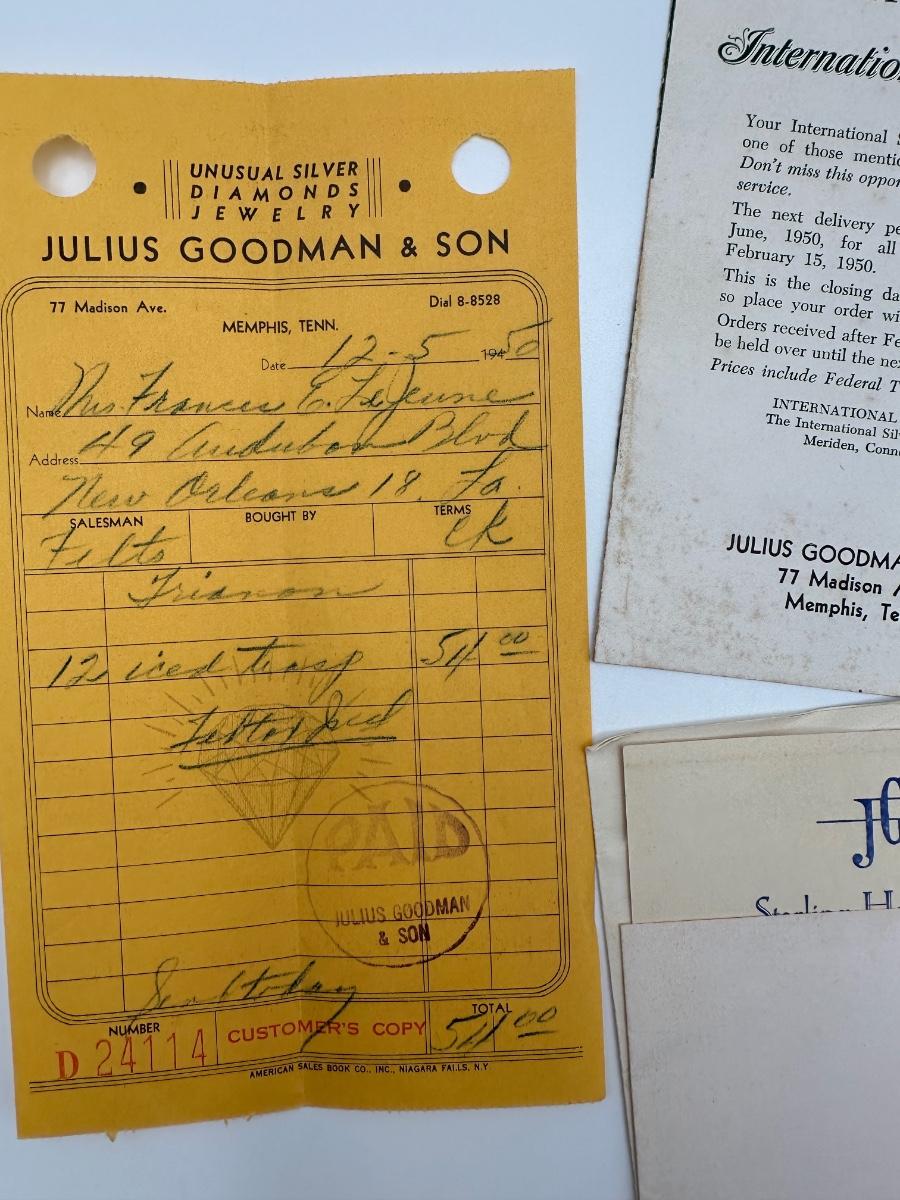 UNUSUAL SILVER
DIAMONDS
JEWELRY
JULIUS GOODMAN & SON
77 Madison Ave.
Dial 8-8528
MEMPHIS, TENN.
Date 12-5 1950
Name Mrs. Frances E. LeJeune
Address 49 Audubon Blvd
New Orleans 18. La.
SALESMAN
BOUGHT BY
TERMS
Felts
ck
Trianon
12 iced teasp 54 00
PAID
JULIUS GOODMAN
& SON
Sent today
NUMBER
D 24114
CUSTOMER'S COPY
TOTAL
54 00
AMERICAN SALES BOOK CO., INC., NIAGARA FALLS, N.Y.
Internatio
Your International S
one of those mentio
Don't miss this oppor
service.
The next delivery pe
June, 1950, for all
February 15, 1950.
This is the closing da
so place your order wi
Orders received after Fe
be held over until the nex
Prices include Federal T
INTERNATIONAL
The International Sil
Meriden, Conne
JULIUS GOODMA
77 Madison A
Memphis, Te
JG
Sterling H